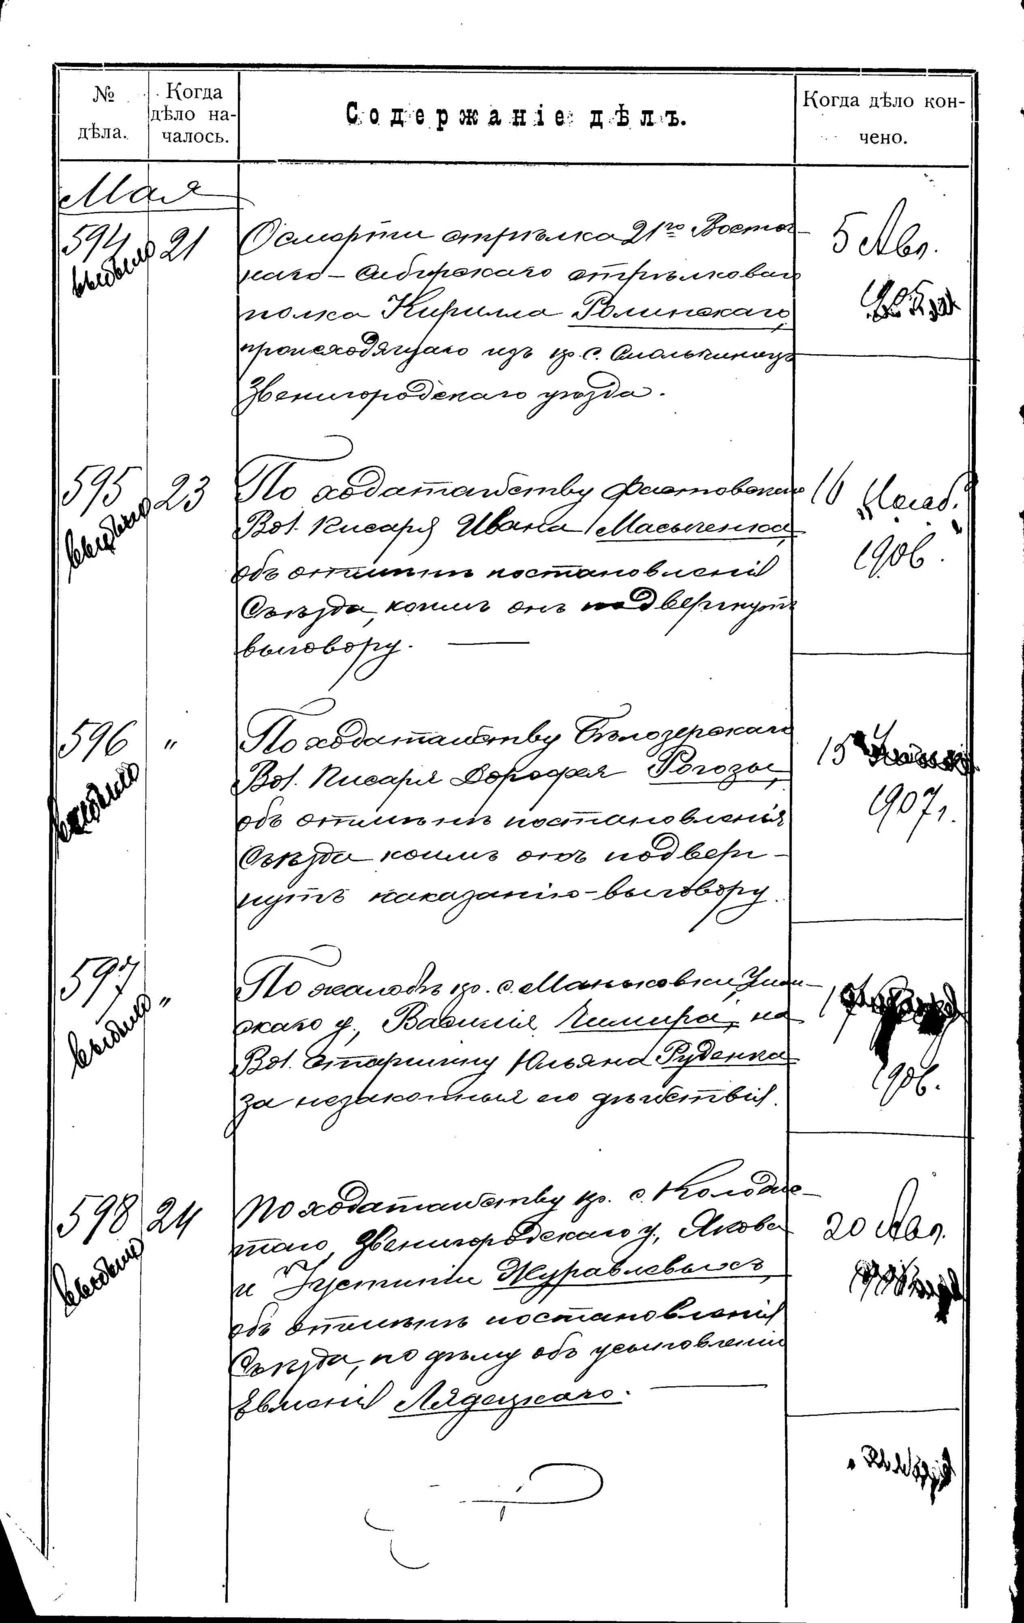 № дѣла.
Когда дѣло на-
чалось.
Содержаніе дѣлъ.
Когда дѣло кон-
чено.
Мая
594 21 О смерти стрѣлка 21го Восточ-
выбыло
наго-Сибирскаго стрѣлковаго
полка Кирилла Ролинскаго,
происходящаго изъ кр. с.
Звенигородскаго уѣзда.
5 Авг.
595 23 По ходатайству Фастовскаго
выбыло
Вол. Писаря Ивана Масыченка,
объ отмѣнѣ постановленія
Съѣзда, коимъ онъ подвергнутъ
выговору.
16
1906.
596 " По ходатайству Бѣлозерскаго
выбыло
Вол. Писаря Дорофея Рогозы,
объ отмѣнѣ постановленія
Съѣзда коимъ онъ подверг-
нутъ наказанію-выговору.
15
1907 г.
597 " По жалобѣ кр. с. Маньковки, Уман-
выбыло
скаго у., Василія Чимира, на
Вол. старшину Юльяна Руденка
за незаконныя его дѣйствія.
17
1906.
598 24 По ходатайству кр. с. Колодис-
выбыло
таго, Звенигородскаго у., Якова
и Густиніи Журавлевыхъ,
объ отмѣнѣ постановленія
Съѣзда, по дѣлу объ усыновленіи
Евменія Лядецкаго.
20 Авг.